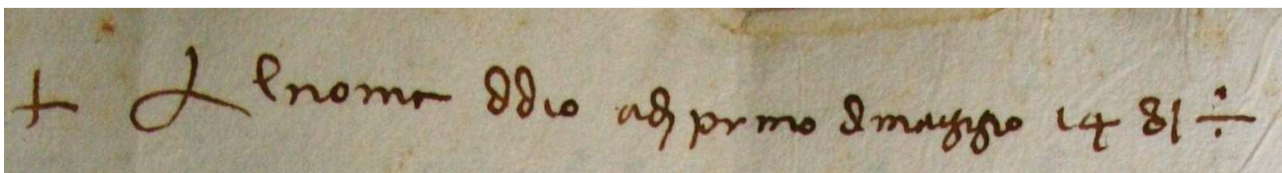 + Al nome ddio adj primo dmaggio 1481 ÷